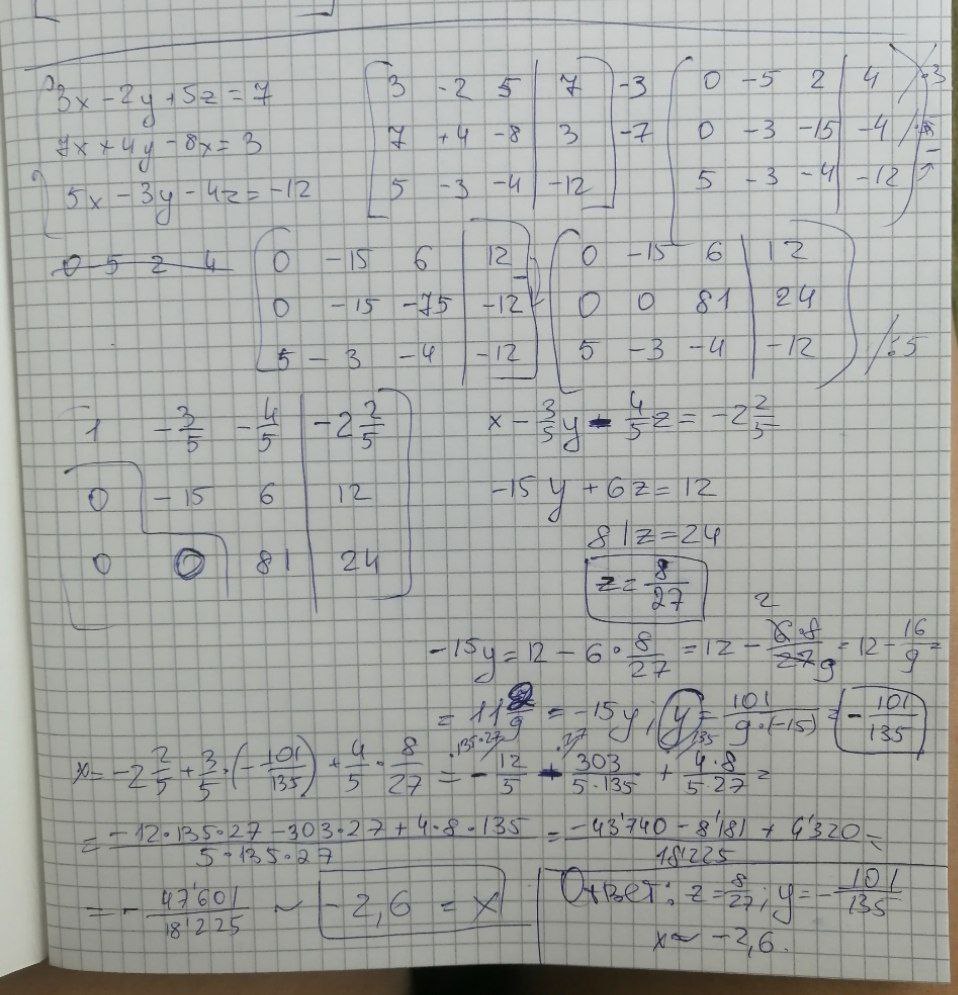 3x - 2y + 5z = 7
7x + 4y - 8x = 3
5x - 3y - 4z = -12
3 -2 5 | 7 -3
7 +4 -8 | 3 -7
5 -3 -4 | -12
0 -5 2 | 4 ·3
0 -3 -15 | -4
5 -3 -4 | -12
0 5 2 4
0 -15 6 | 12
0 -15 -75 | -12
5 -3 -4 | -12
0 -15 6 | 12
0 0 81 | 24
5 -3 -4 | -12 /:5
1 -3/5 -4/5 | -2 2/5
0 -15 6 | 12
0 0 81 | 24
x - 3/5 y - 4/5 z = -2 2/5
-15y + 6z = 12
81z = 24
z = 8/27
-15y = 12 - 6 · 8/27 = 12 - 6·8/27 2 9 = 12 - 16/9 =
= 11 2/9 = -15y; y = 101/9·(-15) = -101/135
x = -2 2/5 + 3/5 · (-101/135) + 4/5 · 8/27 = -12/5 - 303/5·135 + 4·8/5·27 =
= -12·135·27 - 303·27 + 4·8·135 / 5·135·27 = -43'740 - 8'181 + 4'320 / 18'225 =
= - 47'601/18'225 ~ -2,6 = x
Ответ: z = 8/27; y = -101/135
x ~ -2,6.